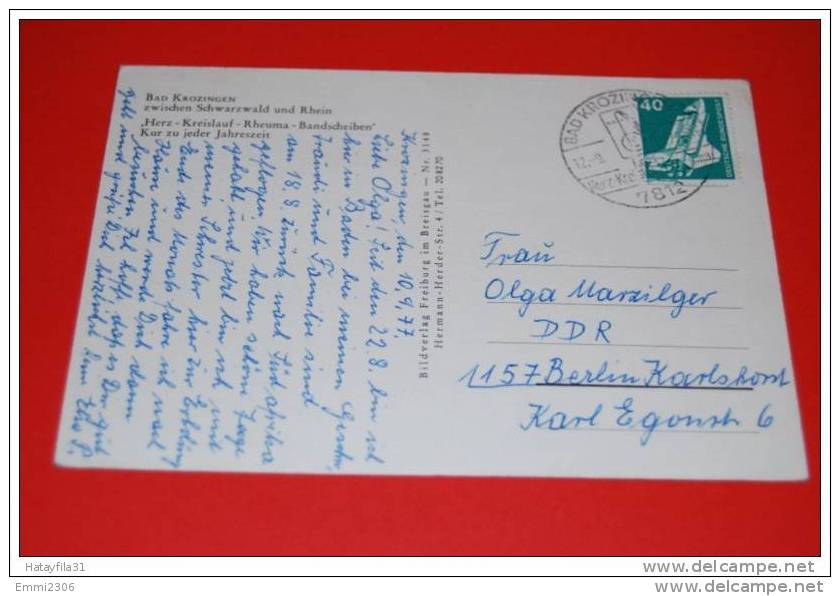 BAD KROZINGEN
zwischen Schwarzwald und Rhein
„Herz - Kreislauf - Rheuma - Bandscheiben"
Kur zu jeder Jahreszeit
Krozingen den 10.9.77.
Liebe Olga! Seit den 22.8. bin ich
hier in Baden bei meinen Geschw.
Traudi und Familie sind
am 18.8 zurück nach Südafrika
geflogen. Wir haben schöne Tage
gehabt und jetzt bin ich mit
meiner Schwester hier zur Erholung
Ende des Monats fahre ich nach
Haus und werde Dich dann
besuchen. Ich hoffe daß es Dir gut
geht und grüße Dich herzlichst
Bildverlag Freiburg im Breisgau — Nr. 3148
Hermann-Herder-Str. 4 / Tel. 208270
BAD KROZINGEN
12.-9.
Herz-Kre
7812
40
DEUTSCHE BUNDESPOST
Frau
Olga Marzilger
DDR
1157 Berlin Karlshorst
Karl Egonstr 6
Hatayfila31
www.delcampe.net
Emmi2306
www.delcampe.net